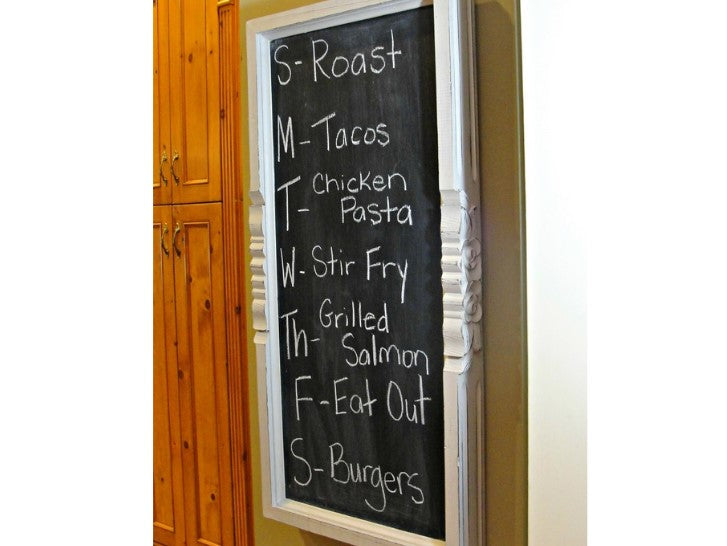 S- Roast
M- Tacos
T- Chicken
Pasta
W- Stir Fry
Th- Grilled
Salmon
F- Eat Out
S- Burgers